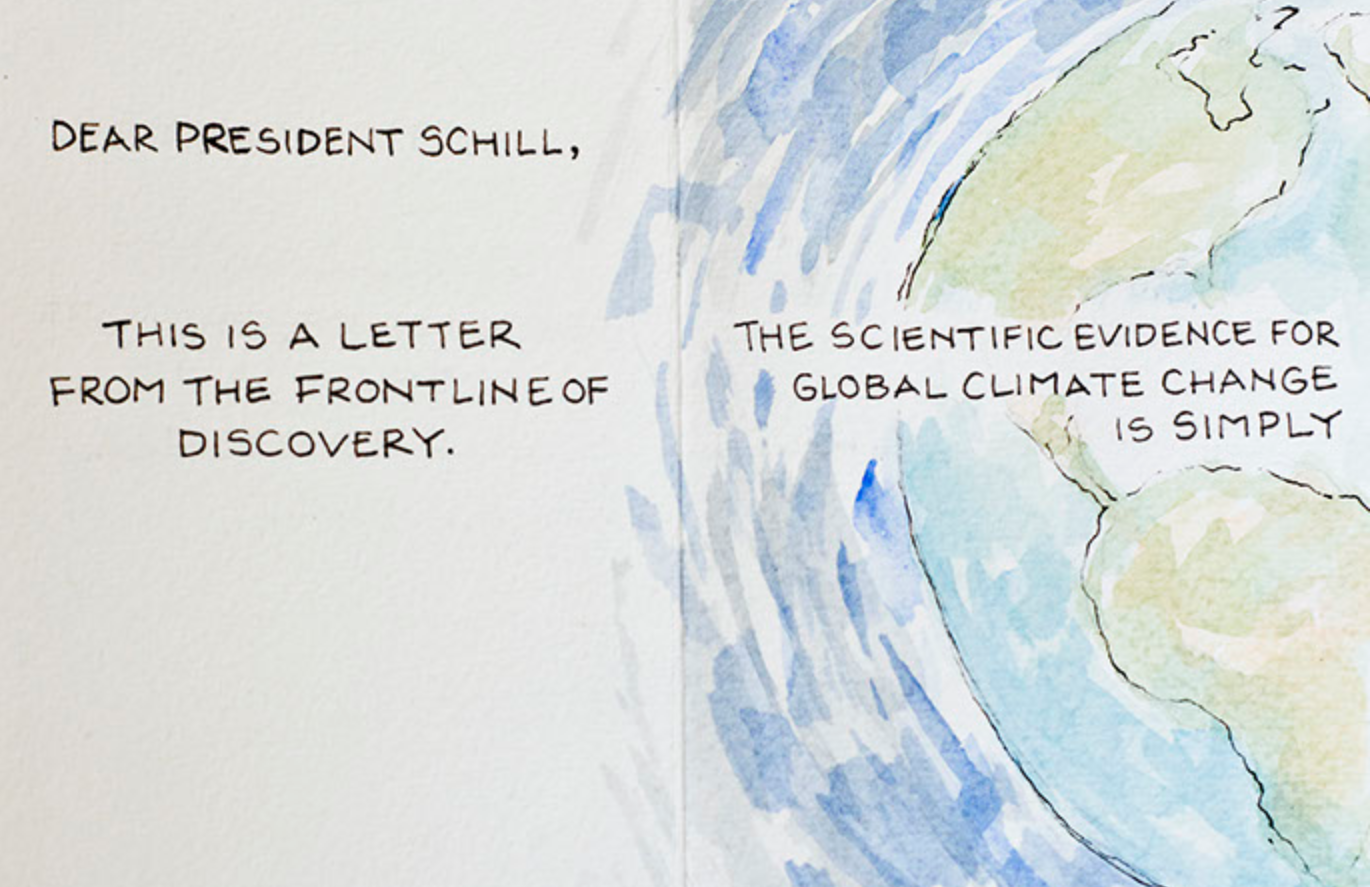 DEAR PRESIDENT SCHILL,
THIS IS A LETTER
FROM THE FRONTLINE OF
DISCOVERY.
THE SCIENTIFIC EVIDENCE FOR
GLOBAL CLIMATE CHANGE
IS SIMPLY